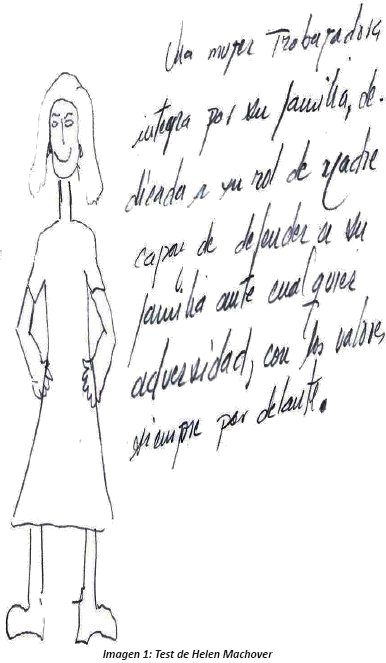 Una mujer Trabajadora
integra por su familia, de-
dicada a su rol de madre
capaz de defender a su
familia ante cualquier
adversidad, con los valores
siempre por delante.
Imagen 1: Test de Helen Machover